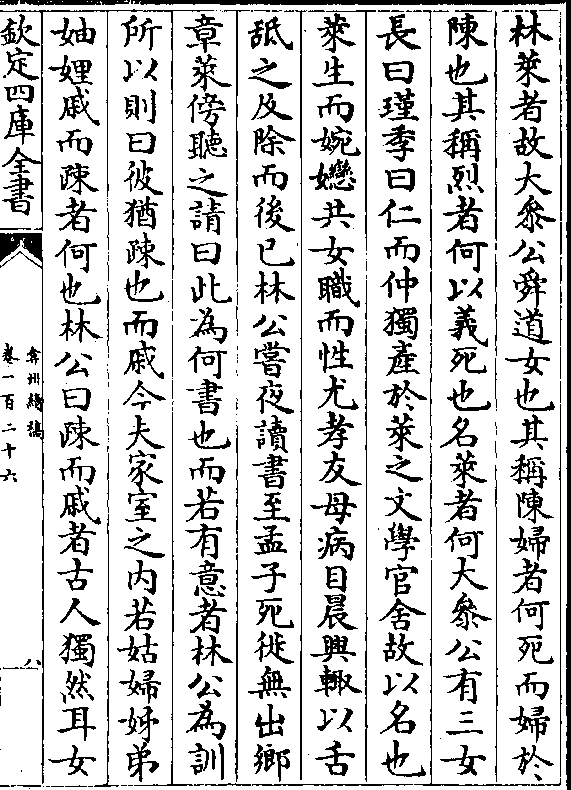 林萊者故大叅公舜道女也其稱陳婦者何死而婦於
陳也其稱烈者何以義死也名萊者何大叅公有三女
長曰瑾季曰仁而仲獨產於萊之文學官舍故以名也
萊生而婉戀共女職而性尤孝友母病目晨興輙以舌
舐之及除而後已林公嘗夜讀書至孟子死徙無出鄉
章萊傍聽之請曰此為何書也而若有意者林公為訓
所以則曰彼猶踈也而戚今夫家室之内若姑婦姊弟
妯娌戚而踈者何也林公曰踈而戚者古人獨然耳女
欽定四庫全書
弇州續稿
卷一百二十六
八